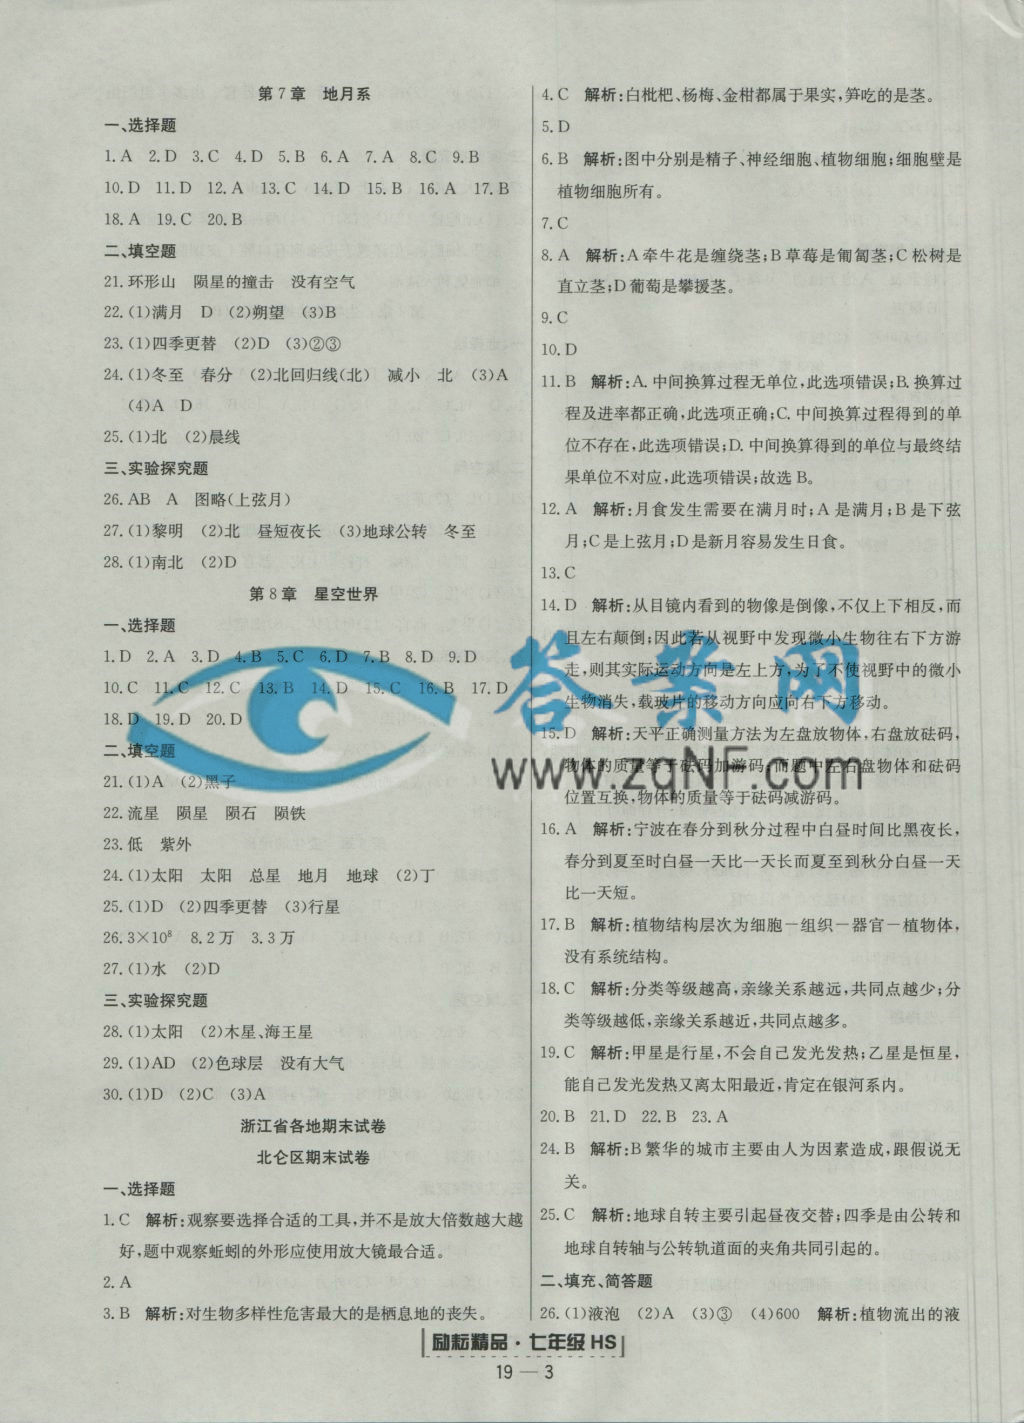 第7章 地月系
一、选择题
1.A 2.D 3.C 4.D 5.B 6.A 7.A 8.C 9.B
10.D 11.D 12.A 13.C 14.D 15.B 16.A 17.B
18.A 19.C 20.B
二、填空题
21.环形山 陨星的撞击 没有空气
22.(1)满月 D (2)朔望 (3)B
23.(1)四季更替 (2)D (3)②③
24.(1)冬至 春分 (2)北回归线(北) 减小 北 (3)A
(4)A D
25.(1)北 (2)晨线
三、实验探究题
26.AB A 图略(上弦月)
27.(1)黎明 (2)北 昼短夜长 (3)地球公转 冬至
28.(1)南北 (2)D
第8章 星空世界
一、选择题
1.D 2.A 3.D 4.B 5.C 6.D 7.B 8.D 9.D
10.C 11.C 12.C 13.B 14.D 15.C 16.B 17.D
18.D 19.D 20.D
二、填空题
21.(1)A (2)黑子
22.流星 陨星 陨石 陨铁
23.低 紫外
24.(1)太阳 太阳 总星 地月 地球 (2)丁
25.(1)D (2)四季更替 (3)行星
26.3×10⁸ 8.2万 3.3万
27.(1)水 (2)D
三、实验探究题
28.(1)太阳 (2)木星、海王星
29.(1)AD (2)色球层 没有大气
30.(1)D (2)C (3)A
浙江省各地期末试卷
北仑区期末试卷
一、选择题
1.C 解析:观察要选择合适的工具,并不是放大倍数越大越
好,题中观察蚯蚓的外形应使用放大镜最合适。
2.A
3.B 解析:对生物多样性危害最大的是栖息地的丧失。
4.C 解析:白枇杷、杨梅、金柑都属于果实,笋吃的是茎。
5.D
6.B 解析:图中分别是精子、神经细胞、植物细胞;细胞壁是
植物细胞所有。
7.C
8.A 解析:A牵牛花是缠绕茎;B草莓是匍匐茎;C松树是
直立茎;D葡萄是攀援茎。
9.C
10.D
11.B 解析:A.中间换算过程无单位,此选项错误;B.换算过
程及进率都正确,此选项正确;C.中间换算过程得到的单
位不存在,此选项错误;D.中间换算得到的单位与最终结
果单位不对应,此选项错误;故选B。
12.A 解析:月食发生需要在满月时;A是满月;B是下弦
月;C是上弦月;D是新月容易发生日食。
13.C
14.D 解析:从目镜内看到的物像是倒像,不仅上下相反,而
且左右颠倒;因此若从视野中发现微小生物往右下方游
走,则其实际运动方向是左上方,为了不使视野中的微小
生物消失,载玻片的移动方向应向右下方移动。
15.D 解析:天平正确测量方法为左盘放物体,右盘放砝码,
物体的质量等于砝码加游码;而题中左右盘物体和砝码
位置互换,物体的质量等于砝码减游码。
16.A 解析:宁波在春分到秋分过程中白昼时间比黑夜长,
春分到夏至时白昼一天比一天长而夏至到秋分白昼一天
比一天短。
17.B 解析:植物结构层次为细胞—组织—器官—植物体,
没有系统结构。
18.C 解析:分类等级越高,亲缘关系越远,共同点越少;分
类等级越低,亲缘关系越近,共同点越多。
19.C 解析:甲星是行星,不会自己发光发热;乙星是恒星,
能自己发光发热又离太阳最近,肯定在银河系内。
20.B 21.D 22.B 23.A
24.B 解析:B繁华的城市主要由人为因素造成,跟假说无
关。
25.C 解析:地球自转主要引起昼夜交替;四季是由公转和
地球自转轴与公转轨道面的夹角共同引起的。
二、填充、简答题
26.(1)液泡 (2)A (3)③ (4)600 解析:植物流出的液
答案网
www.zqNF.com
励耘精品·七年级HS
19—3